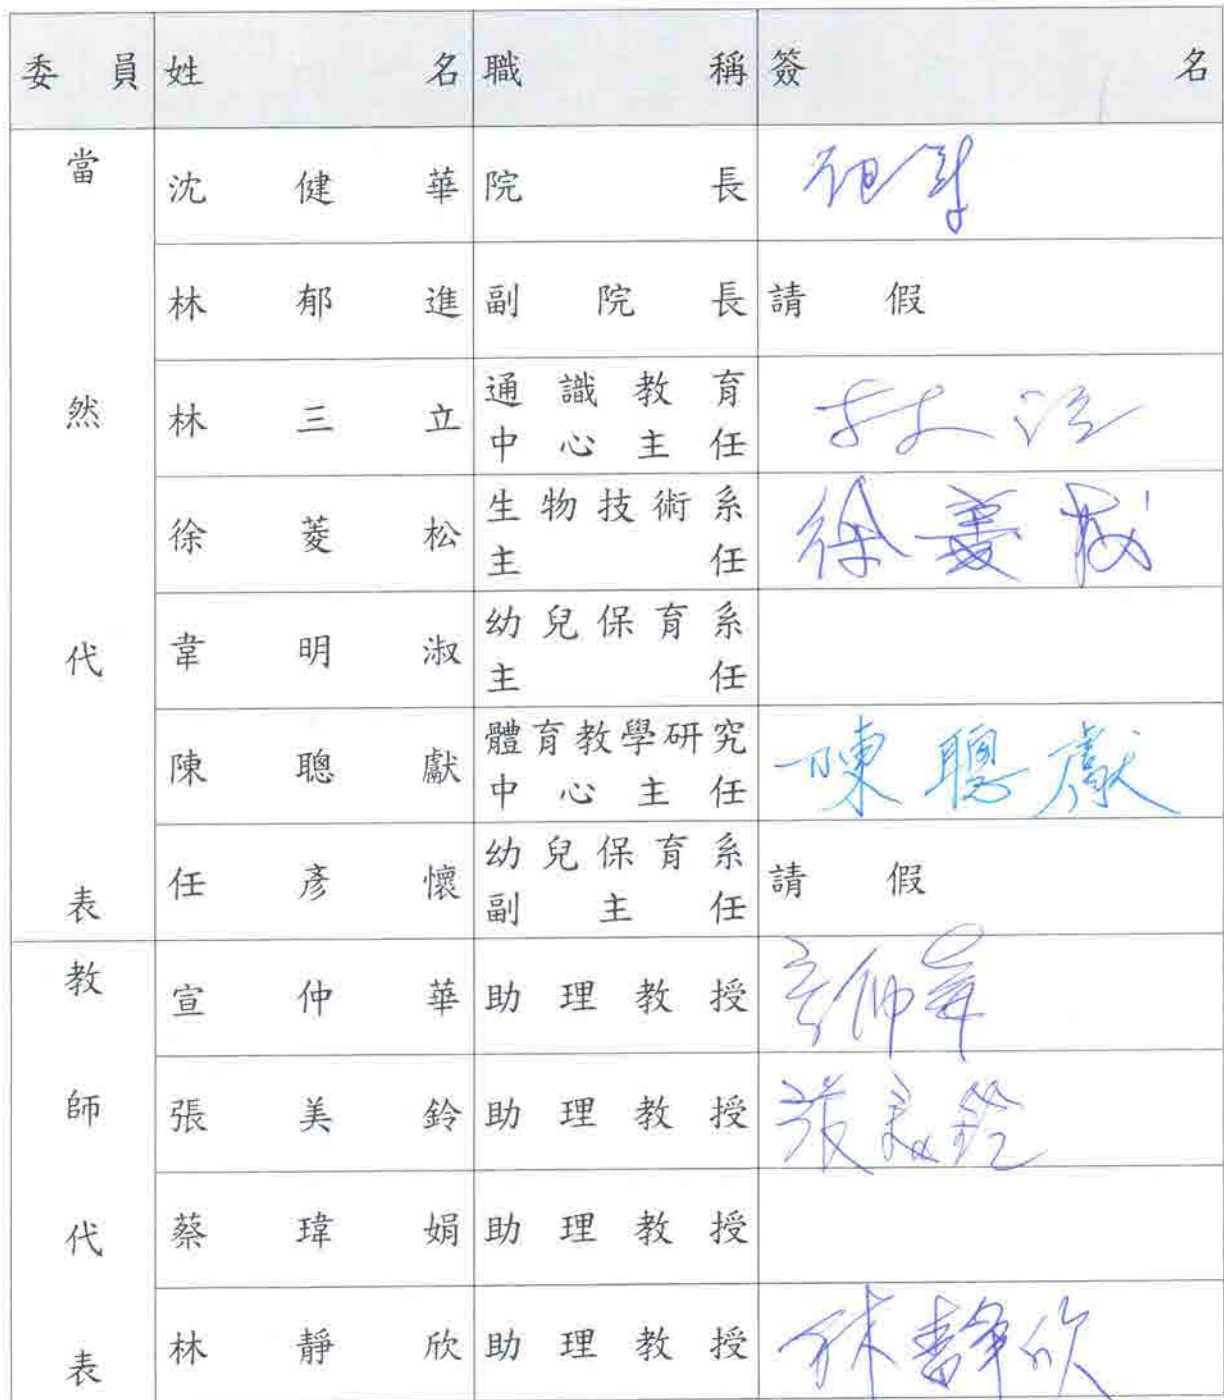 委員 姓名 職稱 簽名
當然代表
沈健華 院長
林郁進 副院長 請假
林三立 通識教育
中心主任
徐菱松 生物技術系
主任 徐菱松
韋明淑 幼兒保育系
主任
陳聰獻 體育教學研究
中心主任 陳聰獻
任彥懷 幼兒保育系
副主任 請假
教師代表
宣仲華 助理教授 宣仲華
張美鈴 助理教授 張美鈴
蔡瑋娟 助理教授
林靜欣 助理教授 林靜欣